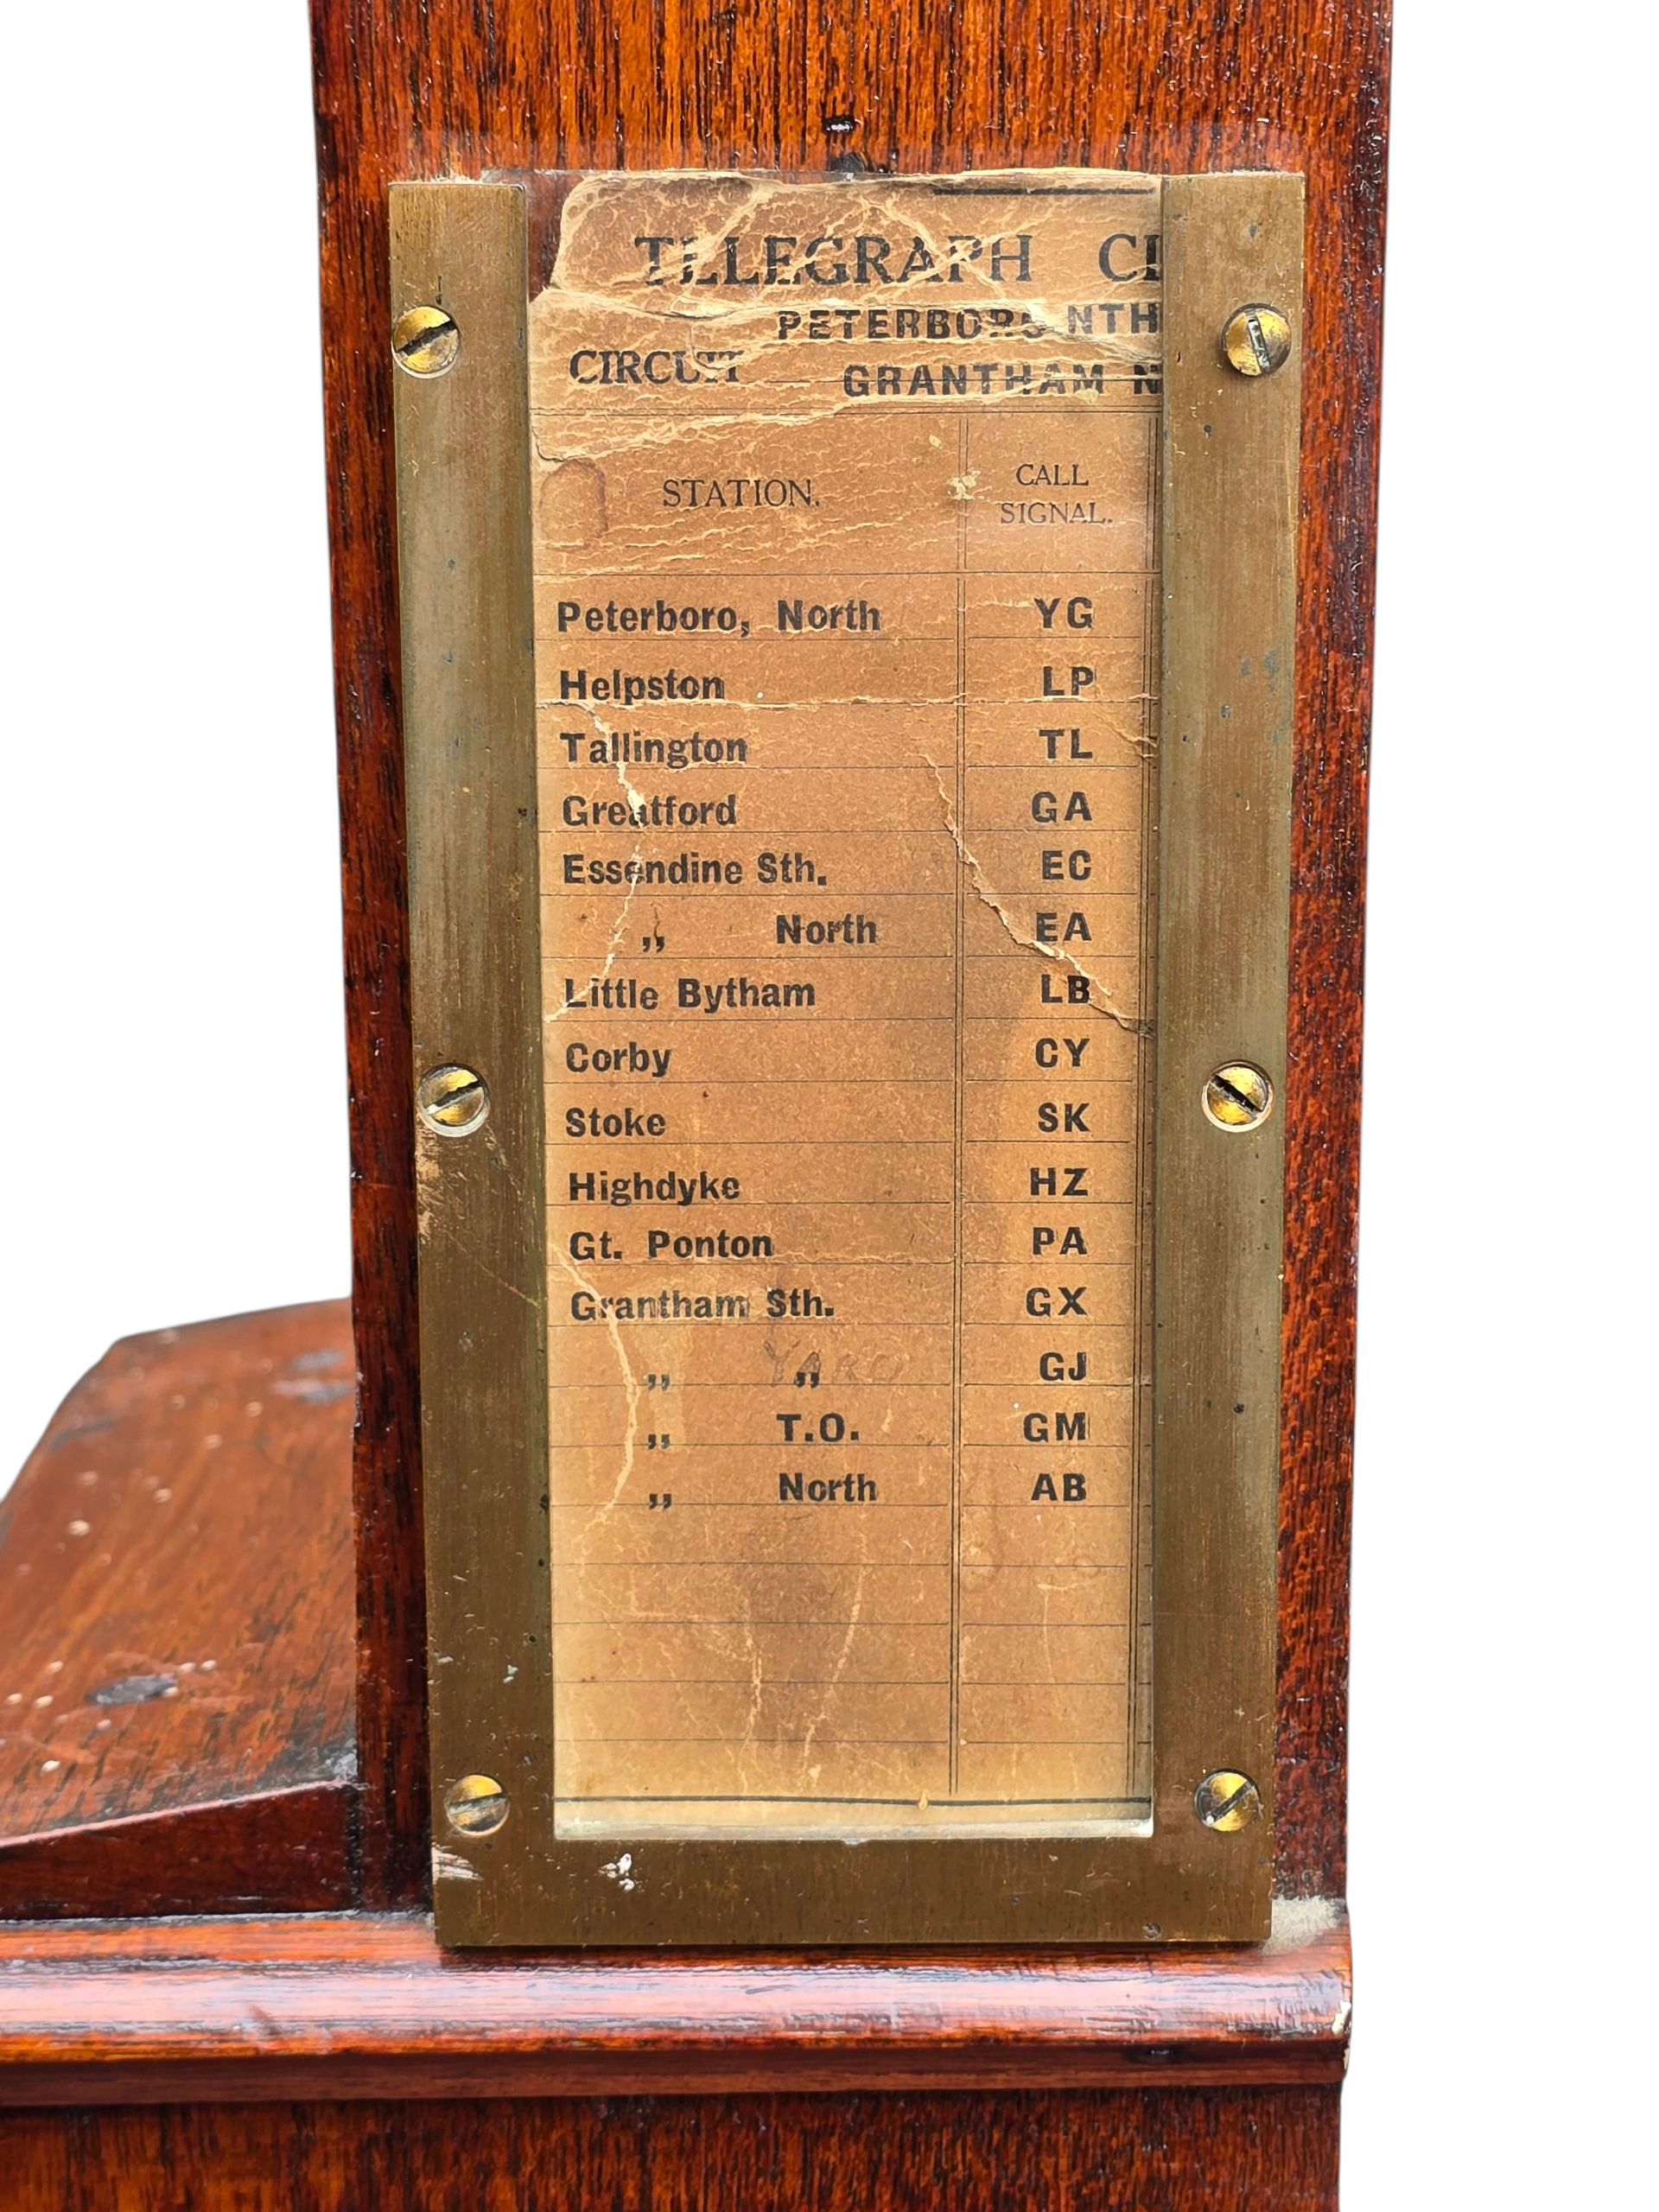 TELEGRAPH CI
PETERBORO NTH
CIRCUIT GRANTHAM N
STATION. CALL SIGNAL.
Peterboro, North YG
Helpston LP
Tallington TL
Greatford GA
Essendine Sth. EC
„ North EA
Little Bytham LB
Corby CY
Stoke SK
Highdyke HZ
Gt. Ponton PA
Grantham Sth. GX
„ „ YARD GJ
„ T.O. GM
„ North AB